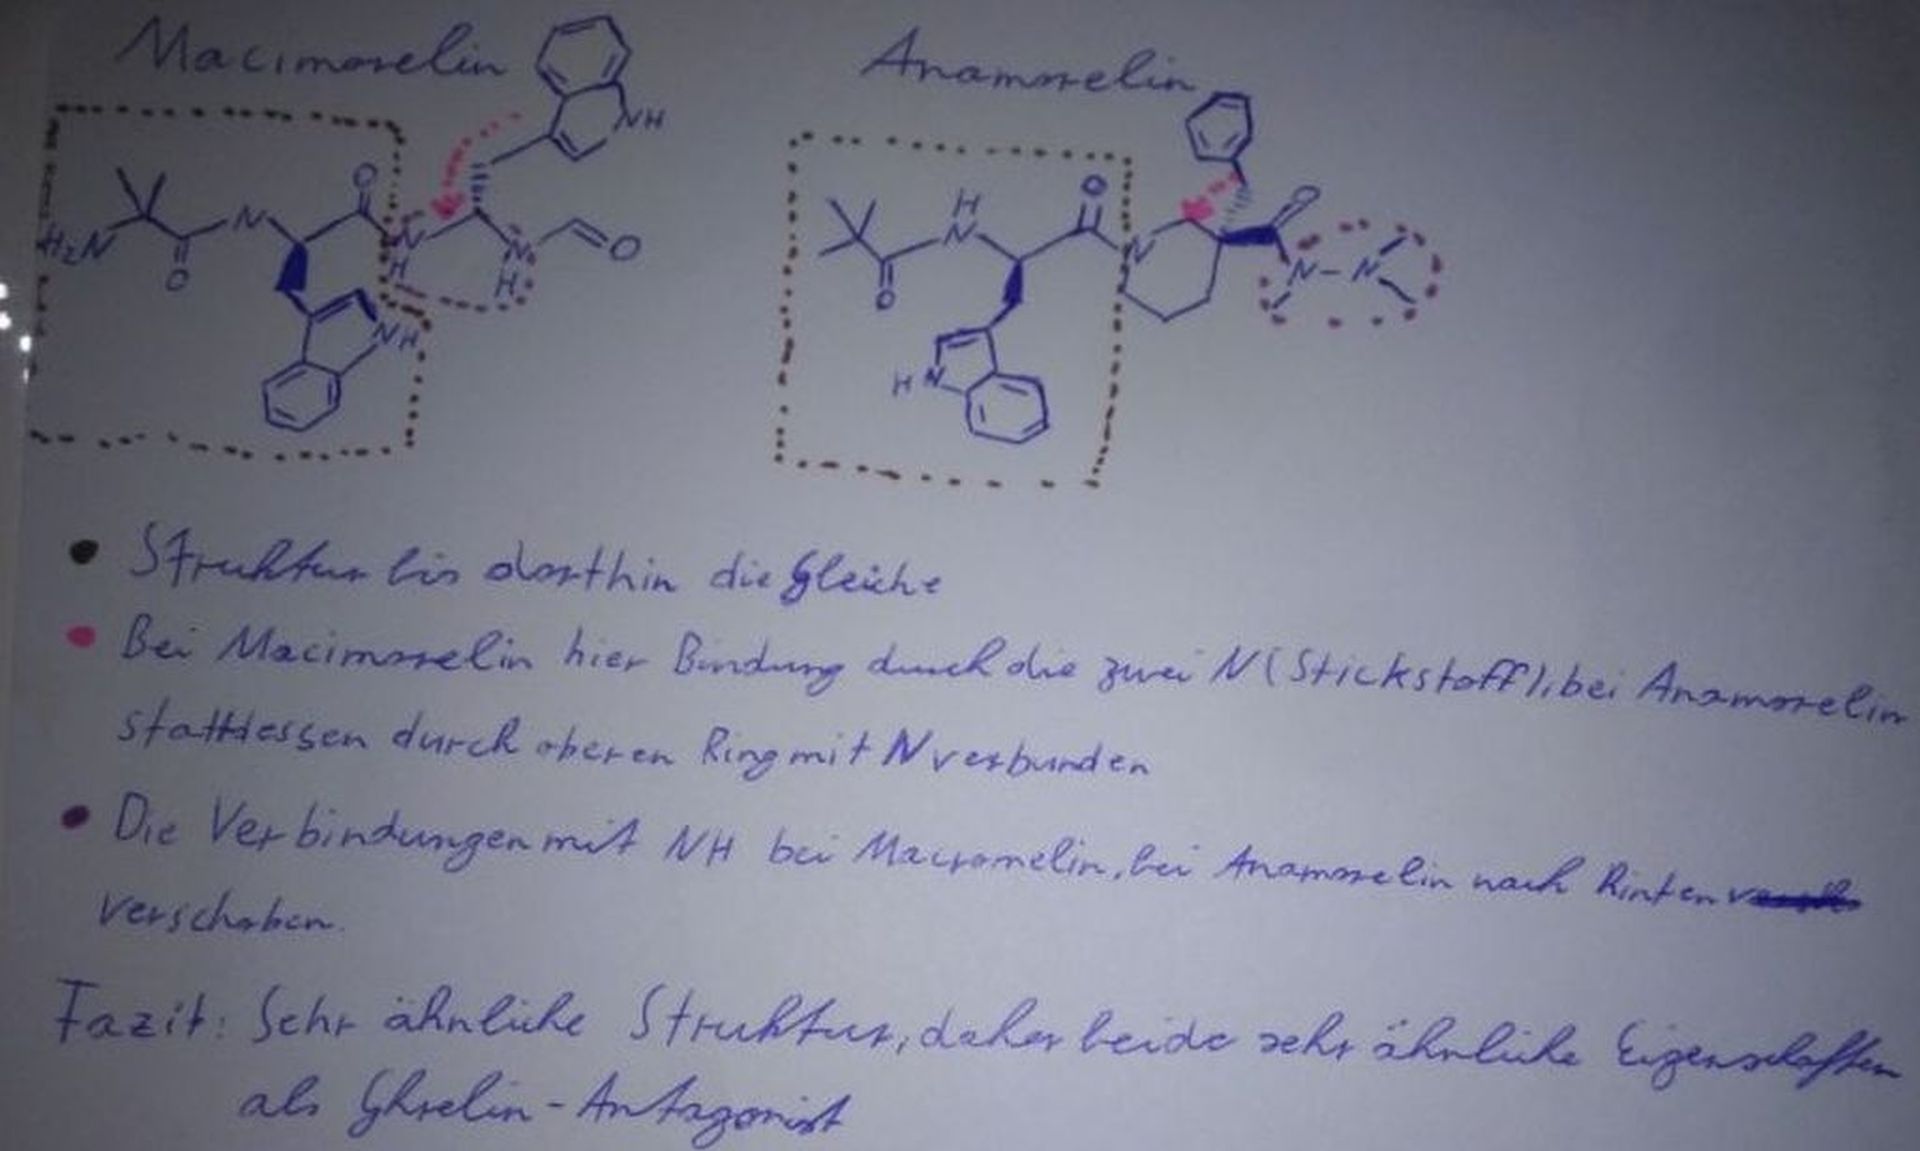 Macimorelin
Anamorelin
NH
O
H2N
O
N
N
H
N
H
O
NH
O
H
N
O
N
O
N-N
H N
Struktur bis dorthin die Gleiche
Bei Macimorelin hier Bindung durch die zwei N (Stickstoff), bei Anamorelin
stattdessen durch oberen Ring mit N verbunden
Die Verbindungen mit NH bei Macromelin, bei Anamorelin nach hinten
verschoben.
Fazit: Sehr ähnliche Struktur, daher beide sehr ähnliche Eigenschaften
als Ghrelin-Antagonist